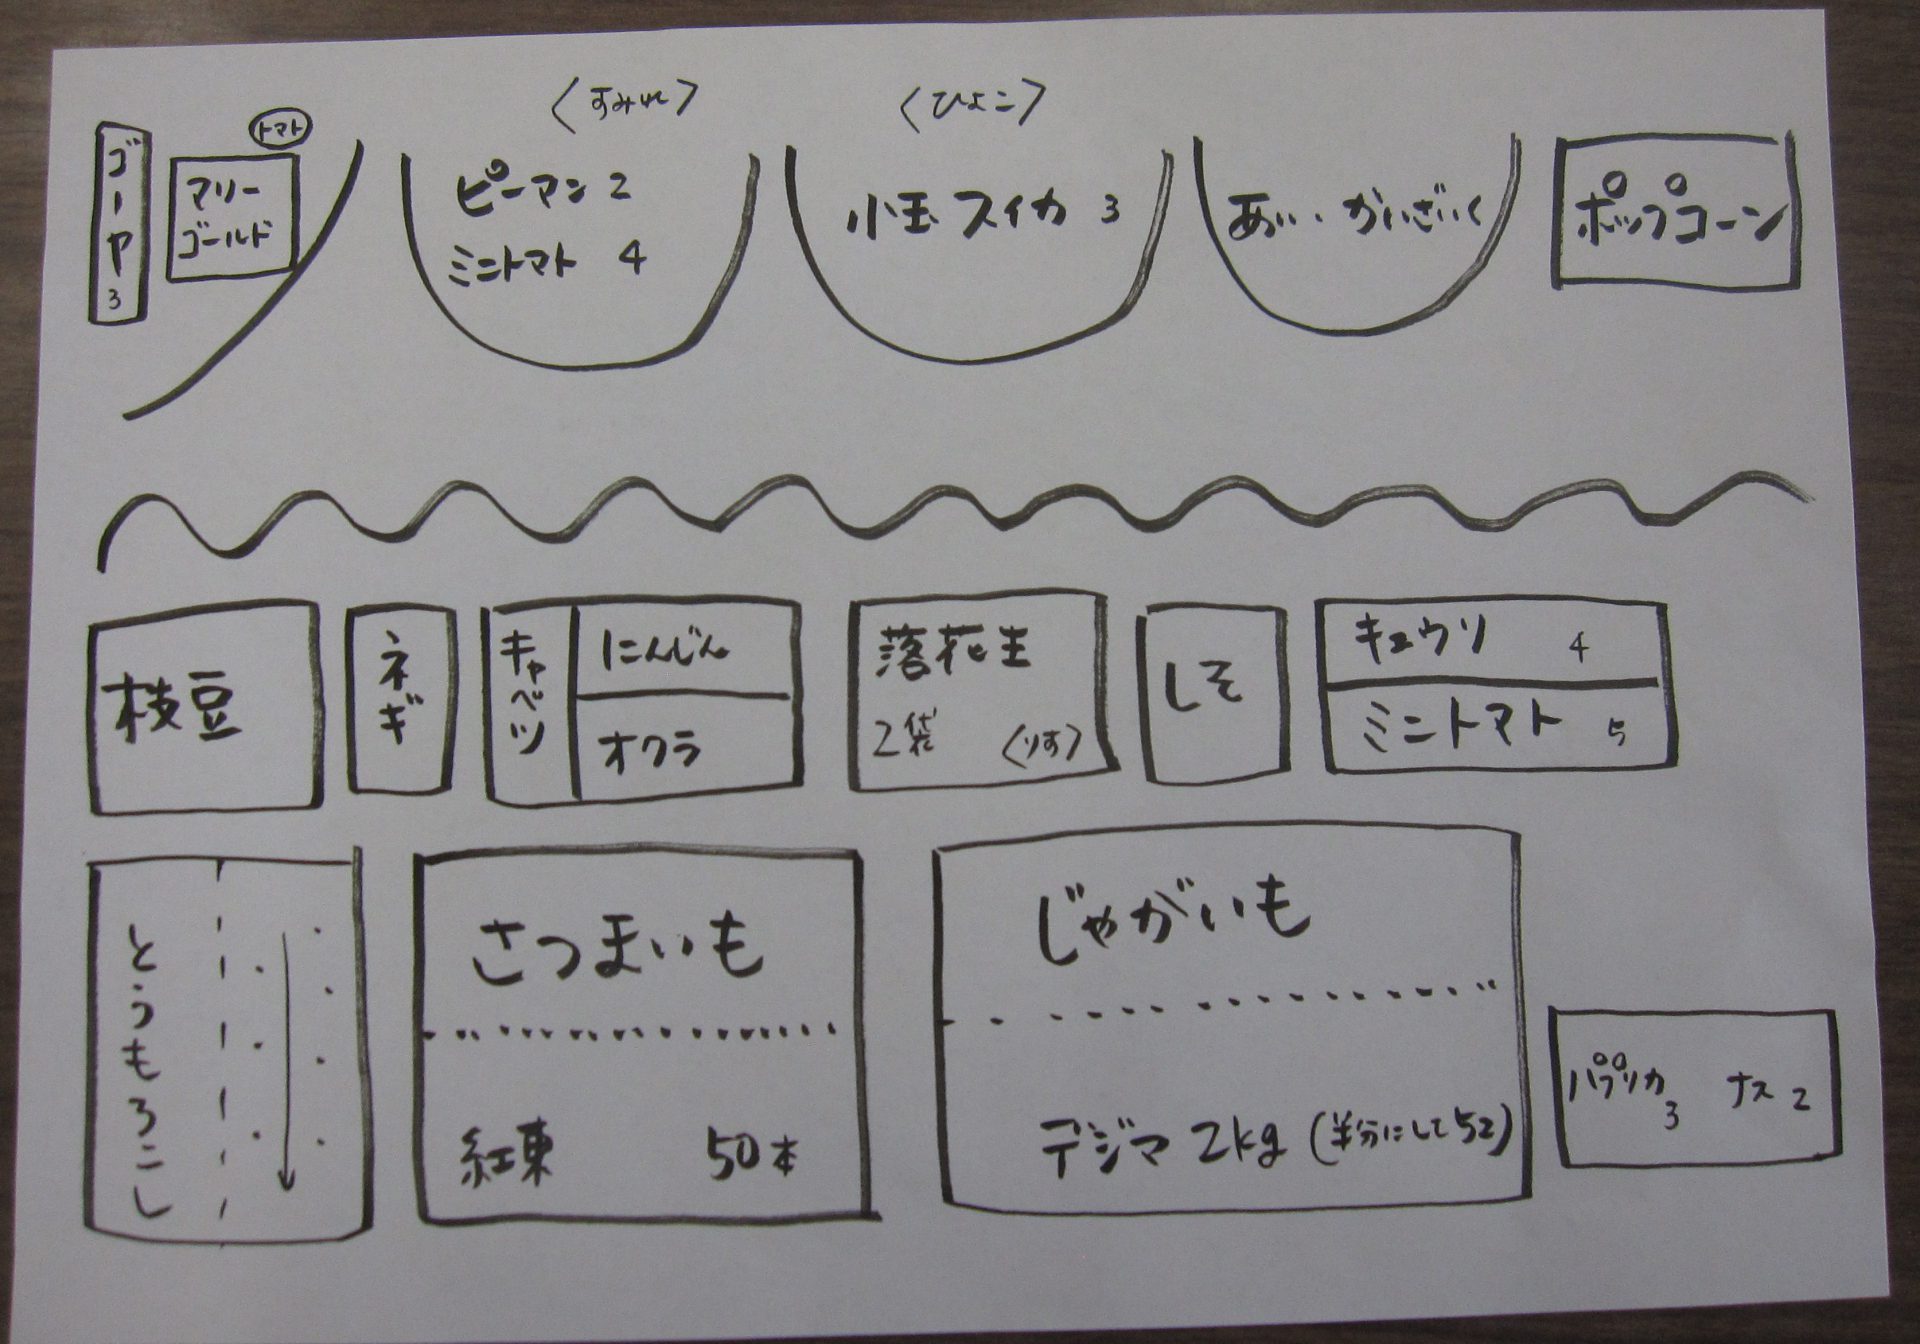 〈すみれ〉
〈ひよこ〉
トマト
ゴーヤ3
マリー
ゴールド
ピーマン2
ミニトマト 4
小玉スイカ 3
あい・かいざいく
ポップコーン
枝豆
ネギ
キャベツ
にんじん
オクラ
落花生
2袋 〈りす〉
しそ
キュウリ 4
ミニトマト 5
とうもろこし
さつまいも
紅東 50本
じゃがいも
デジマ 2kg (半分にして52)
パプリカ3 ナス2